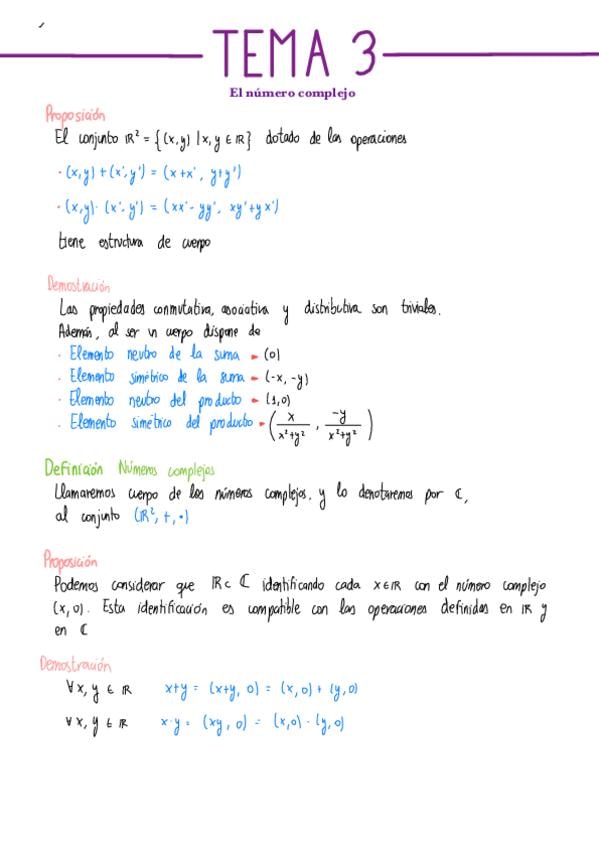 TEMA 3
El número complejo
Proposición
El conjunto ℝ² = {(x,y) | x, y ∈ ℝ} dotado de las operaciones
· (x,y) + (x', y') = (x+x', y+y')
· (x,y) · (x', y') = (xx' - yy', xy' + yx')
tiene estructura de cuerpo
Demostración
Las propiedades conmutativa, asociativa y distributiva son triviales.
Además, al ser un cuerpo dispone de
· Elemento neutro de la suma → (0)
· Elemento simétrico de la suma → (-x, -y)
· Elemento neutro del producto → (1,0)
· Elemento simétrico del producto → (x/(x²+y²), -y/(x²+y²))
Definición Números complejos
Llamaremos cuerpo de los números complejos, y lo denotaremos por ℂ,
al conjunto (ℝ², +, ·)
Proposición
Podemos considerar que ℝ ⊂ ℂ identificando cada x ∈ ℝ con el número complejo
(x, 0). Esta identificación es compatible con las operaciones definidas en ℝ y
en ℂ
Demostración
∀ x, y ∈ ℝ x+y = (x+y, 0) = (x, 0) + (y, 0)
∀ x, y ∈ ℝ x·y = (xy, 0) = (x,0) · (y, 0)